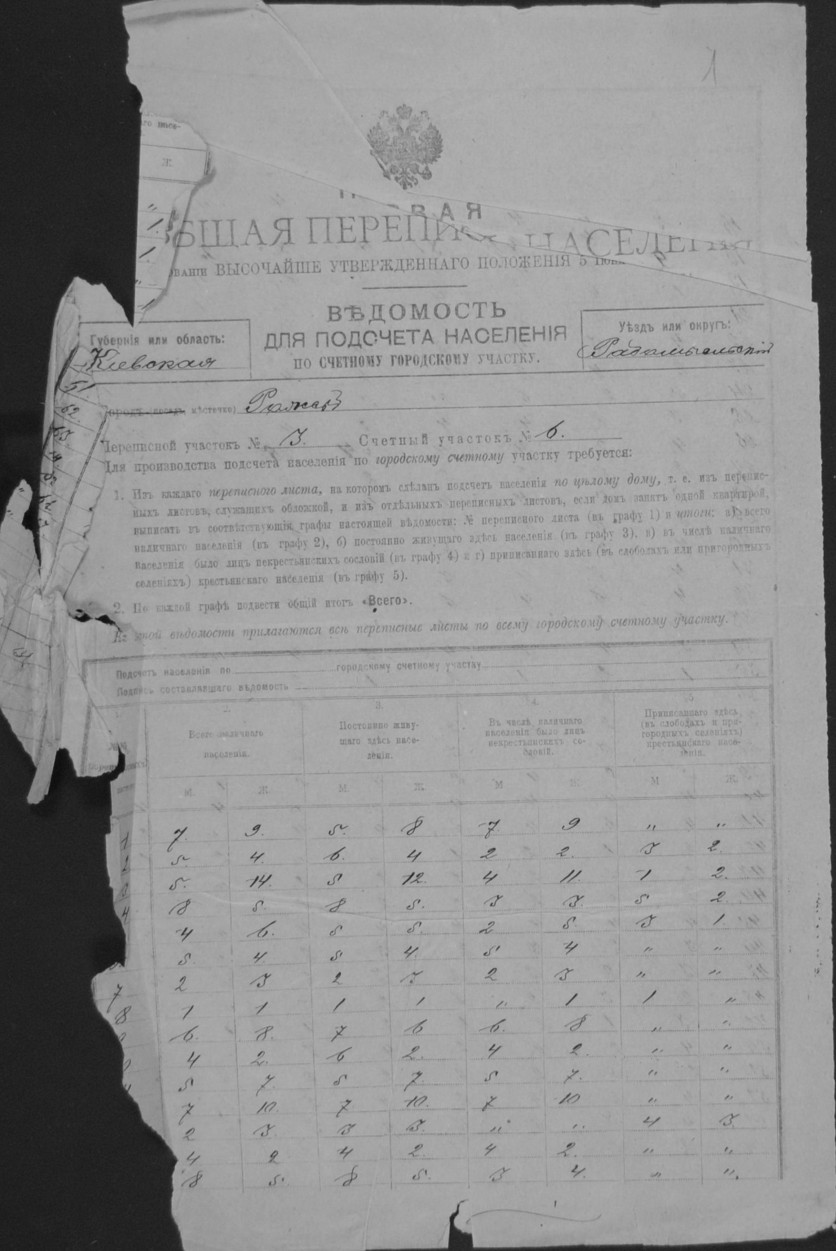 1
ВАЯ
БЩАЯ ПЕРЕПИ НАСЕЛЕНІЯ
ованіи ВЫСОЧАЙШЕ УТВЕРЖДЕННАГО ПОЛОЖЕНІЯ 5
ВѢДОМОСТЬ
ДЛЯ ПОДСЧЕТА НАСЕЛЕНІЯ
ПО СЧЕТНОМУ ГОРОДСКОМУ УЧАСТКУ.
Губернія или область:
Кіевская
Уѣздъ или округъ:
Радомысльскій
мѣстечко)
Переписной участокъ № 3. Счетный участокъ № 6.
Для производства подсчета населенія по городскому счетному участку требуется:
1. Изъ каждаго переписного листа, на которомъ сдѣланъ подсчетъ населенія по цѣлому дому, т. е. изъ перепис-
ныхъ листовъ, служащихъ обложкой, и изъ отдѣльныхъ переписныхъ листовъ, если домъ занятъ одной квартирой,
выписать въ соотвѣтствующія графы настоящей вѣдомости: № переписного листа (въ графу 1) и итоги: а) всего
наличнаго населенія (въ графу 2), б) постоянно живущаго здѣсь населенія (въ графу 3), в) въ числѣ наличнаго
населенія было лицъ некрестьянскихъ сословій (въ графу 4) и г) приписаннаго здѣсь (въ слободахъ или пригородныхъ
селеніяхъ) крестьянскаго населенія (въ графу 5).
2. По каждой графѣ подвести общій итогъ «Всего».
вѣдомости прилагаются всѣ переписные листы по всему городскому счетному участку.
Подсчетъ населенія по городскому счетному участку
Подпись составлявшаго вѣдомость
2. 3. 4. 5.
Всего наличнаго населенія.
Постоянно живу-
щаго здѣсь насе-
ленія.
Въ числѣ наличнаго
населенія было лицъ
некрестьянскихъ со-
словій.
Приписаннаго здѣсь
(въ слободахъ и при-
городныхъ селеніяхъ)
крестьянскаго насе-
ленія.
М. Ж. М. Ж. М Ж. М Ж.
7. 9. 5. 8 7 9 „ „
5. 4. 6. 4 2 2. 3 2.
5. 14. 5 12. 4 11 1 2.
8 5. 8 5. 3 3. 5 2.
4 6. 5 5. 2 5. 3 1.
5 4 5 4. 5 4 „ „
2 3 2 3 2 3 „ „
1 1 1 1 „ 1 1 „
6. 8. 7 6 6. 8 „ „
4 2. 6 2. 4 2. „ „
5 7. 5 7. 5 7. „ „
7 10. 7 10. 7 10 „ „
2 3. 3 3. „ „ 4 3.
4 2 4 2 4 2. „ „
8 5. 8 5. 3 4. „ „